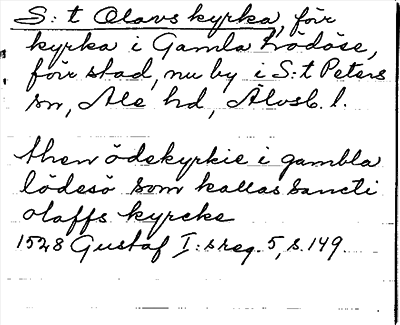 S:t Olavs kyrka, för
kyrka i Gamla Lödöse,
förr stad, nu by i S:t Peters
sn, Ale hd, Älvsb. l.
then ödekyrkie i gambla
lödesö som kallas Sancti
olaffs kyrcke
1528 Gustaf I:s reg. 5, s. 149.